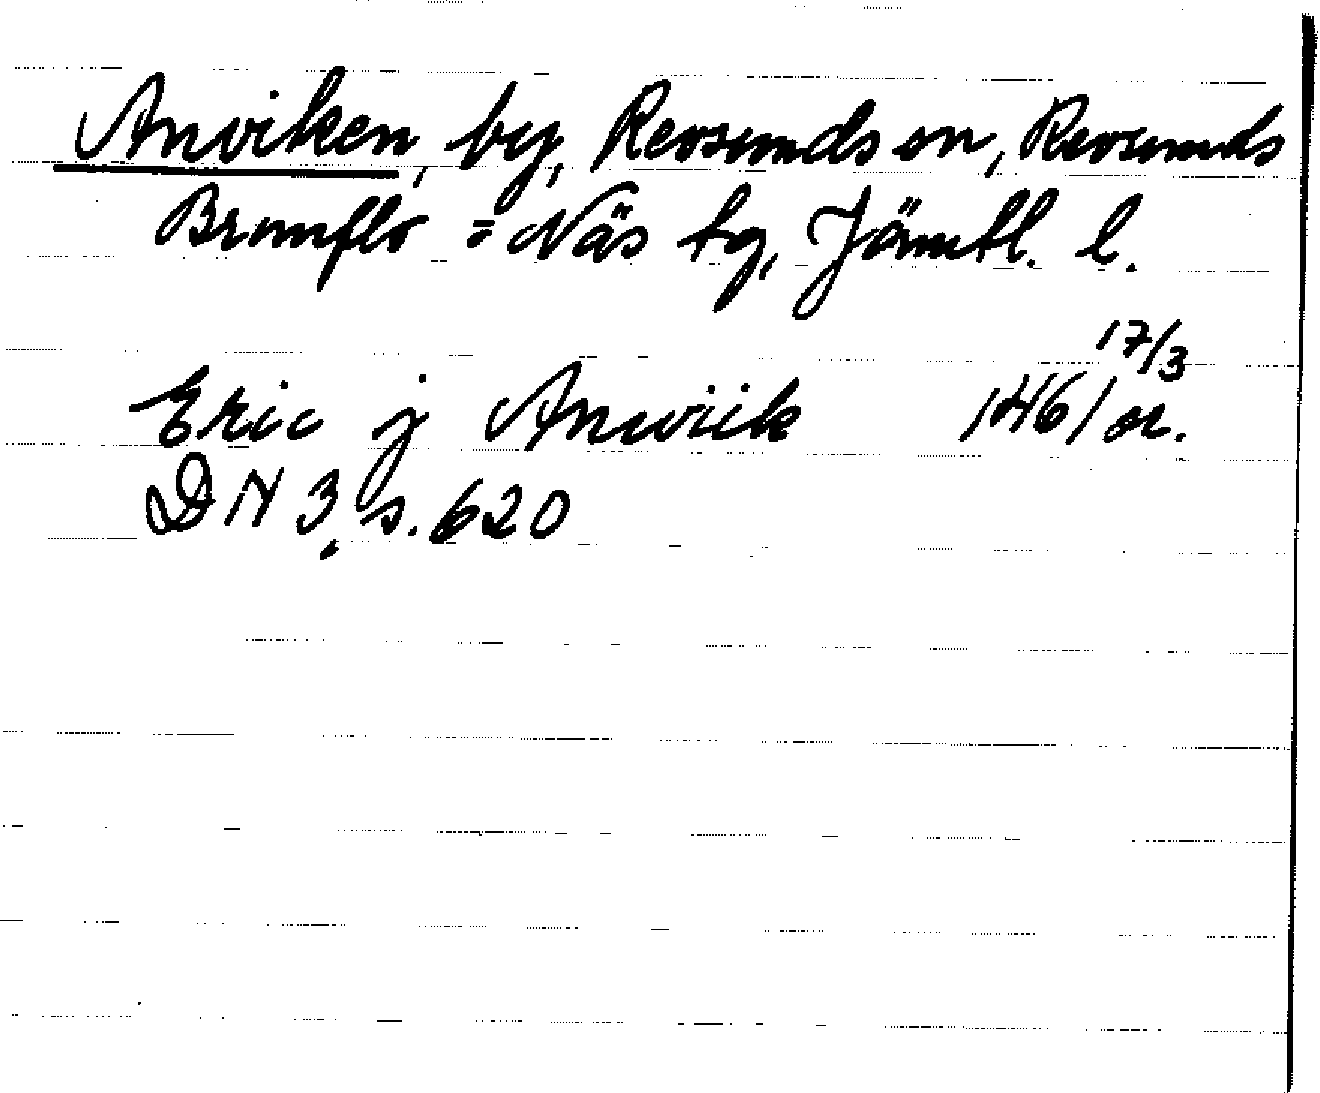 Anviken, by, Revsunds sn, Revsunds
Brunflo = Näs tg, Jämtl. l.
17/3
Eric j Anwiik 1461 or.
DN 3, s. 620